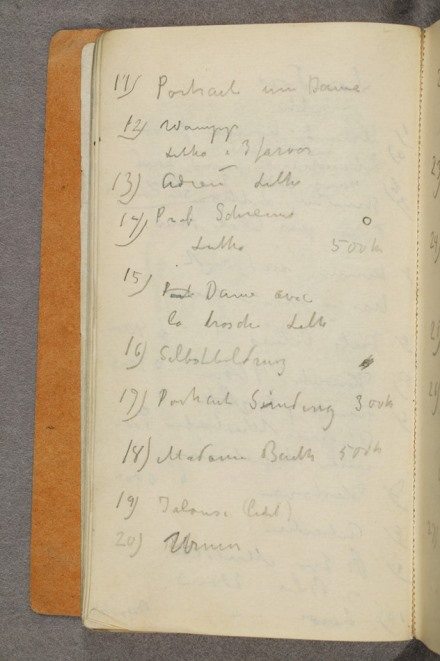 11) Portrait um Dame
12) Vampyr
Litho i 3 farver
13) Litho
14) Prof. Schreiner
Litho 500 kr
15) Dame avec
la broche Litho
16) Selbstbildnis
17) Portrait Sinding 300 kr
18) Madame Barth 500 kr
19) Jalousi
20) Urnen